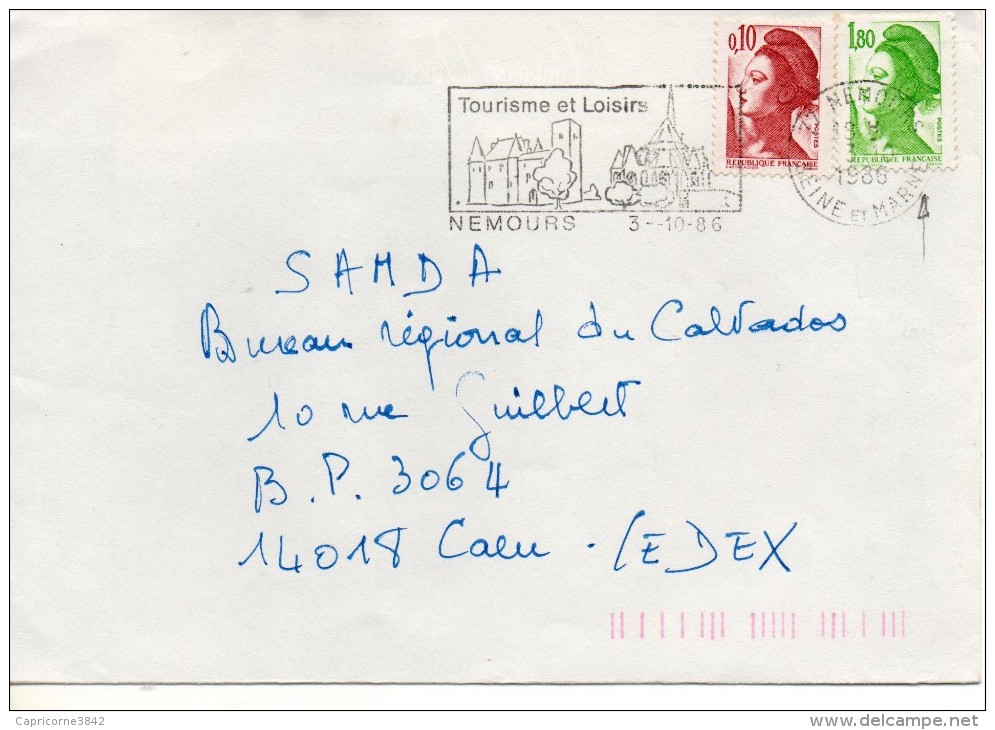 0,10
POSTES
REPUBLIQUE FRANÇAISE
1,80
POSTES
REPUBLIQUE FRANÇAISE
Tourisme et Loisirs
NEMOURS 3--10-86
77 NEMOURS
1986
SEINE ET MARNE
SAMDA
Bureau régional du Calvados
10 rue Guilbert
B.P. 3064
14018 Caen - CEDEX
Capricorne3842
www.delcampe.net